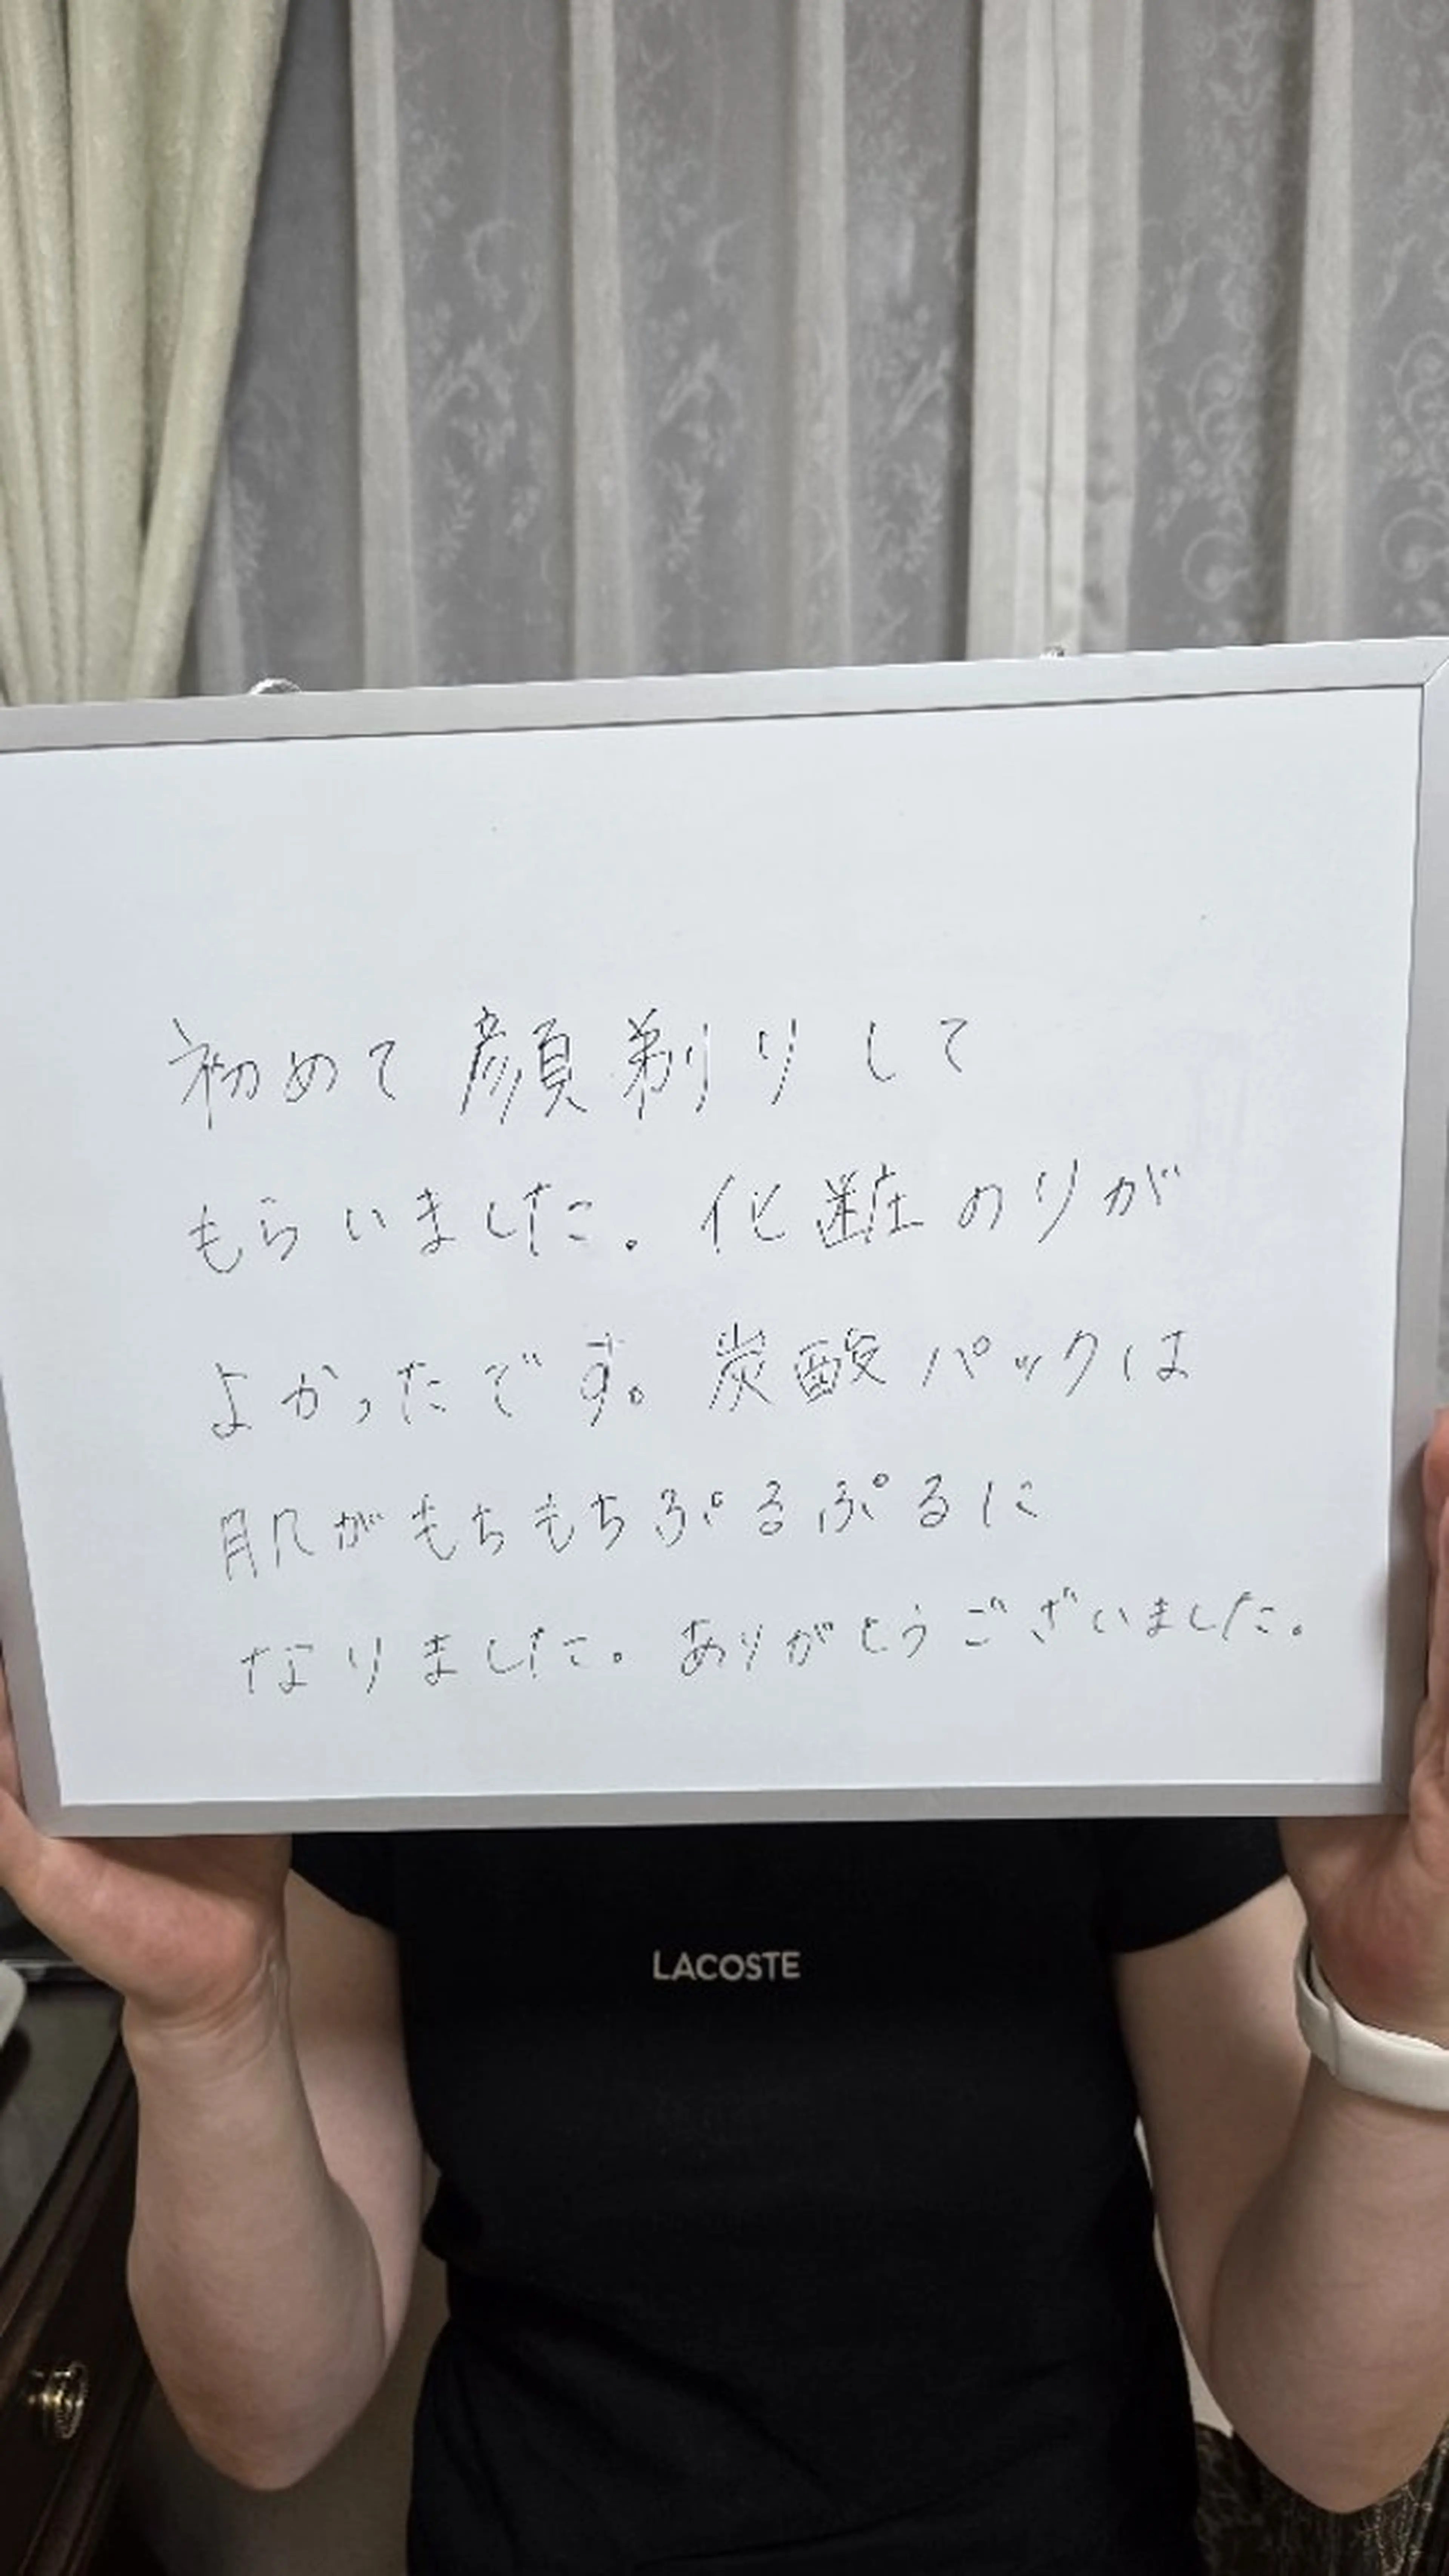 初めて顔剃りして
もらいました。化粧のりが
よかったです。炭酸パックは
肌がもちもちぷるぷるに
なりました。ありがとうございました。
LACOSTE